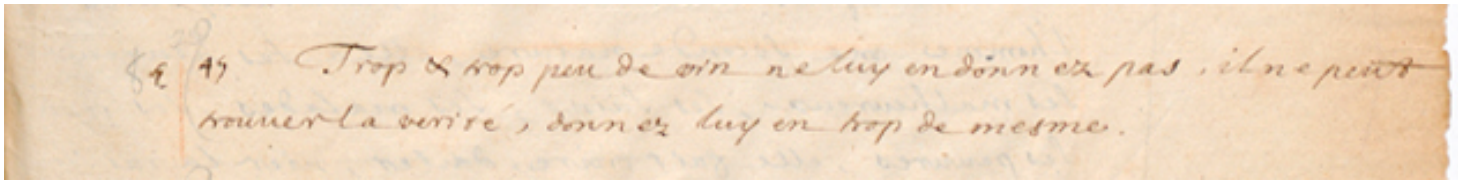 45 Trop & trop peu de vin ne luy en donnez pas, il ne peut
trouver la verité, donnez luy en trop de mesme.